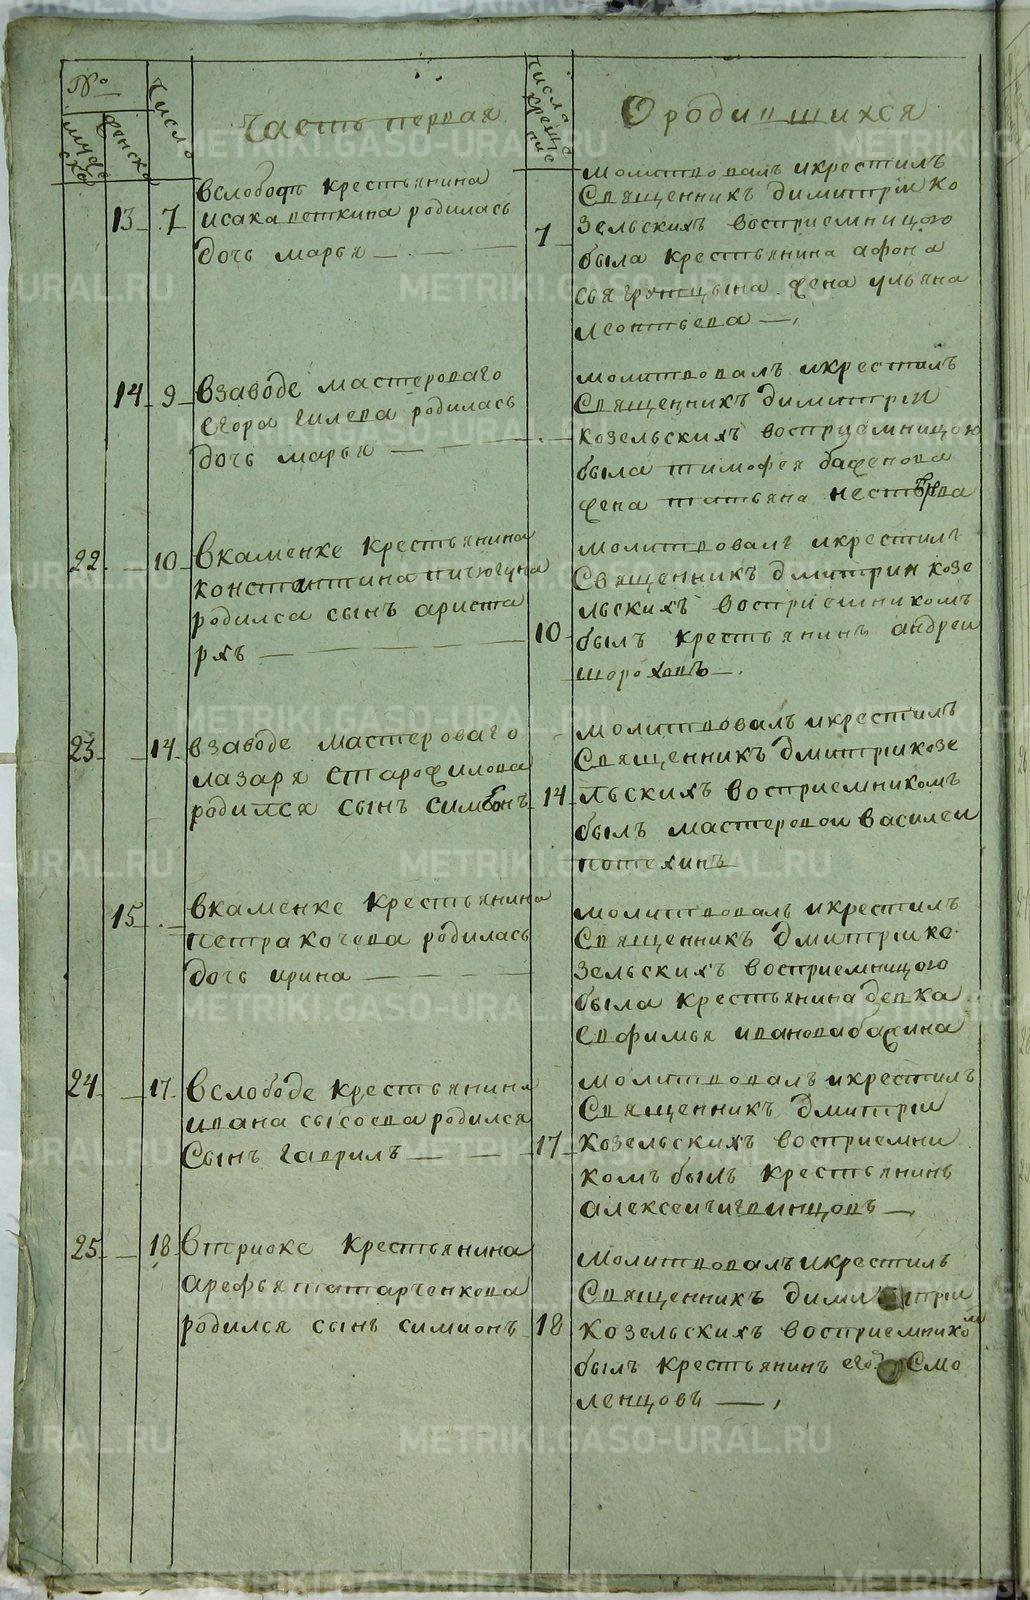 №
мужеска
женска
число
Часть первая
числа крещение
О родившихся
13 7
вслободѣ крестьянина
исака петкина родилась
дочь марья
7
молитвовалъ икрестилъ
Священникъ димитріи ко
зельскихъ восприемницою
была крестьянина афона
жена ульяна
леонтьева
14 9
взаводе мастероваго
егора гилева родилась
дочь марья
молитвовалъ икрестилъ
Священникъ димитріи
козельскихъ восприемницою
была тимофея баженова
жена татьяна нестерова
22 10
вкаменке крестьянина
константина пичюгина
родился сынъ ариста
рхъ
10
молитвовалъ икрестилъ
Священникъ дмитрии козе
льскихъ восприемникомъ
былъ крестьянинъ андреи
шороховъ
23 14
взаводе мастероваго
лазаря старожилова
родился сынъ симеонъ
14
молитвовалъ икрестилъ
Священникъ дмитріи козе
льскихъ восприемникомъ
былъ мастеровои василеи
потехинъ
15
вкаменке крестьянина
петра кочева родилась
дочь ирина
молитвовалъ икрестилъ
Священникъ дмитріи ко
зельскихъ восприемницою
была крестьянина девка
евфимья иванова бахина
24 17
вслободе крестьянина
ивана сысоева родился
Сынъ гаврилъ
17
молитвовалъ икрестилъ
Священникъ дмитріи
козельскихъ восприемни
комъ былъ крестьянинъ
алексеи чигвинцовъ
25 18
втриоке крестьянина
арефья татарченкова
родился сынъ симионъ
18
молитвовалъ икрестилъ
Священникъ димитріи
козельскихъ восприемнико
мъ
былъ крестьянинъ егоръ Смо
ленцовъ
METRIKI.GASO-URAL.RU